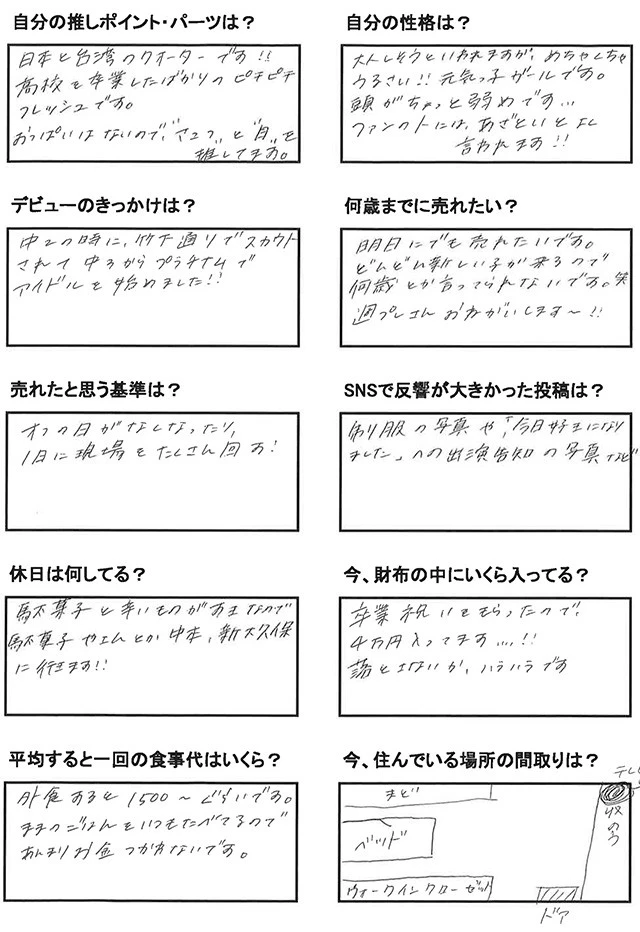 自分の推しポイント・パーツは？
日本と台湾のクオーターです!!
高校を卒業したばかりのピチピチ
フレッシュです。
おっぱいはないので、"さコツ"と"目"を
推してます。
自分の性格は？
大人しそうといわれますが、めちゃくちゃ
うるさい!! 元気っ子ガールです。
頭がちょっと弱めです...
ファンの人には、あざといとよく
言われます!!
デビューのきっかけは？
中2の時に、竹下通りでスカウト
されて中3からプラチナムで
アイドルを始めました!!
何歳までに売れたい？
明日にでも売れたいです。
どんどん新しい子が来るので
何歳とか言ってられないです。笑
週プレさんおねがいします〜!!
売れたと思う基準は？
オフの日がなくなったり、
1日に現場をたくさん回る!
SNSで反響が大きかった投稿は？
制服の写真や、「今日好きになり
ました」への出演告知の写真など
休日は何してる？
駄菓子と辛いものがすきなので
駄菓子やさんとか中本、新大久保
に行きます!!
今、財布の中にいくら入ってる？
卒業祝いをもらったので、
4万円入ってます....!!
落とさないか、ハラハラです
平均すると一回の食事代はいくら？
外食すると1500〜ぐらいです。
ままのごはんをいつもたべてるので
あんまりお金つかわないです。
今、住んでいる場所の間取りは？
まど
テレビ
収のう
ベッド
ウォークインクローゼット
ドア